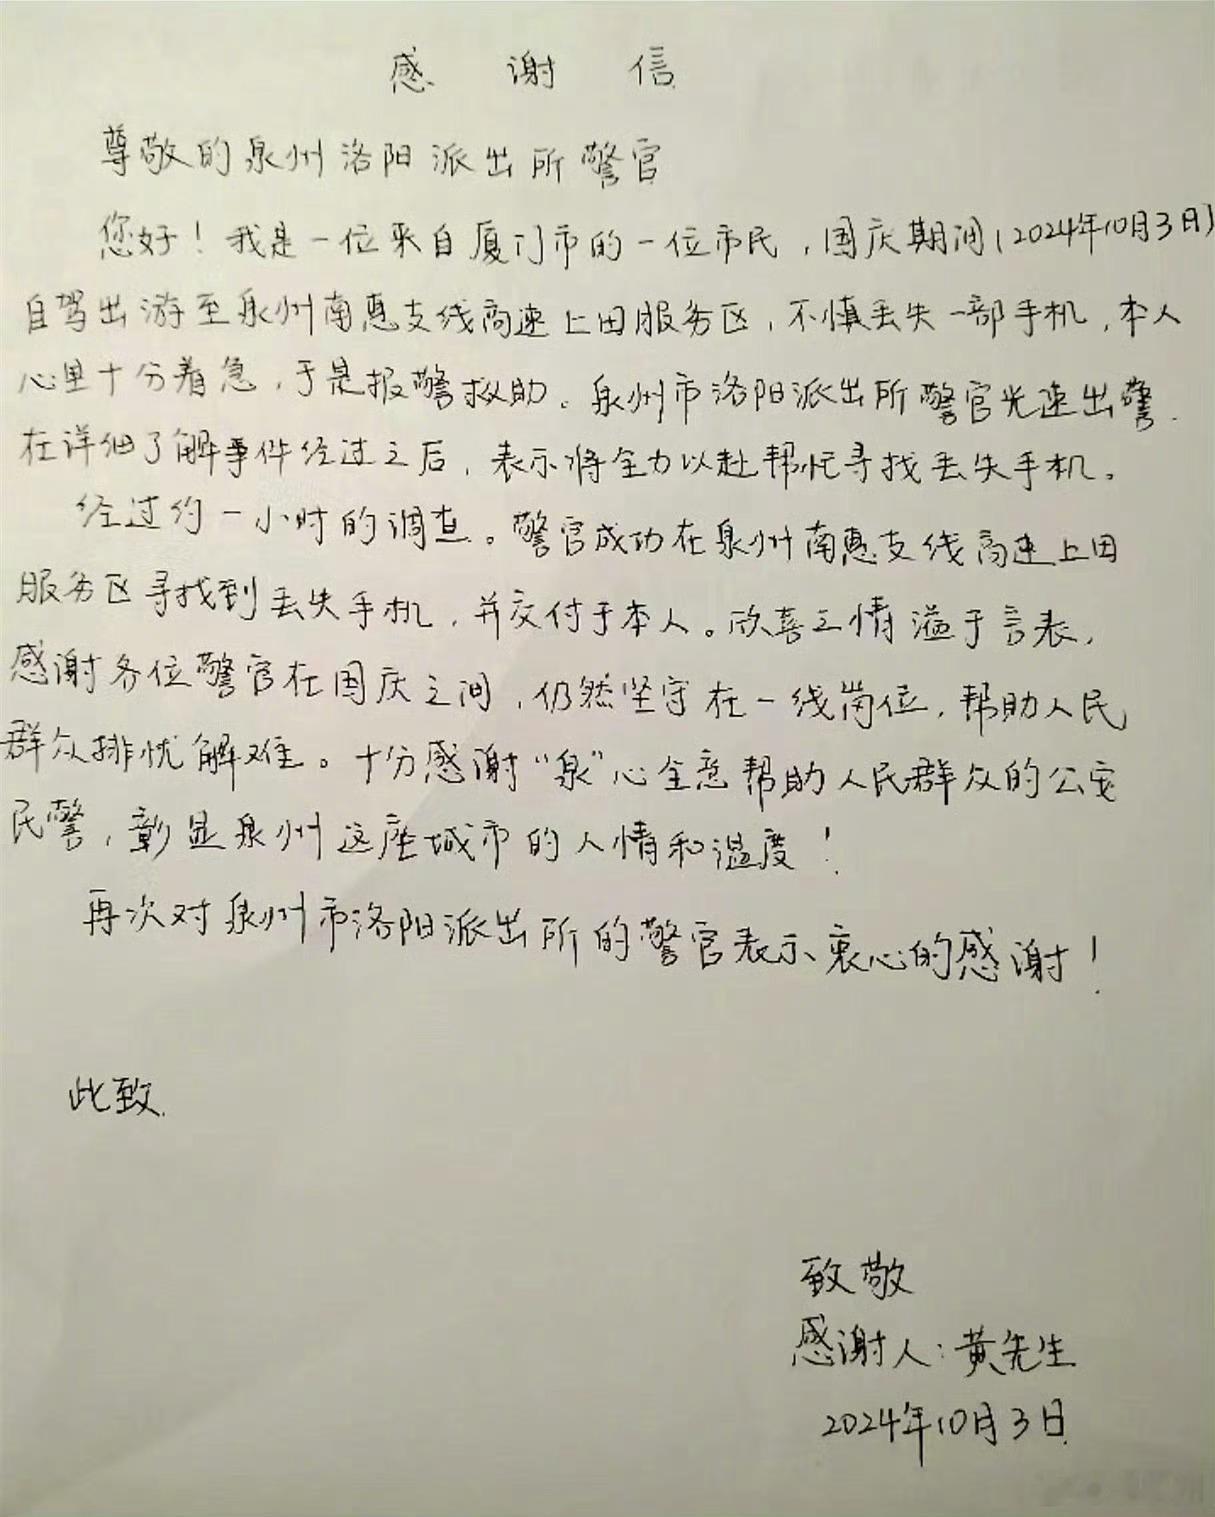 感谢信
尊敬的泉州洛阳派出所警官
您好！我是一位来自厦门市的一位市民，国庆期间（2024年10月3日）
自驾出游至泉州南惠支线高速上田服务区，不慎丢失一部手机，本人
心里十分着急，于是报警救助。泉州市洛阳派出所警官光速出警.
在详细了解事件经过之后，表示将全力以赴帮忙寻找丢失手机。
经过约一小时的调查。警官成功在泉州南惠支线高速上田
服务区寻找到丢失手机，并交付于本人。欣喜之情溢于言表，
感谢各位警官在国庆之间，仍然坚守在一线岗位，帮助人民
群众排忧解难。十分感谢“泉”心全意帮助人民群众的公安
民警，彰显泉州这座城市的人情和温度！
再次对泉州市洛阳派出所的警官表示衷心的感谢！
此致.
致敬
感谢人：黄先生
2024年10月3日